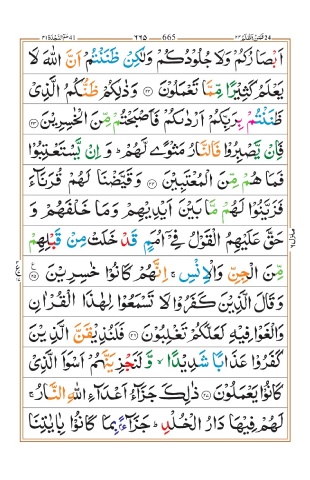 اَبْصَارُكُمْ وَلَا جُلُوْدُكُمْ وَلٰكِنْ ظَنَنْتُمْ اَنَّ اللّٰهَ لَا
يَعْلَمُ كَثِيْرًا مِّمَّا تَعْمَلُوْنَ ۝٢٢ وَذٰلِكُمْ ظَنُّكُمُ الَّذِىْ
ظَنَنْتُمْ بِرَبِّكُمْ اَرْدٰىكُمْ فَاَصْبَحْتُمْ مِّنَ الْخٰسِرِيْنَ ۝٢٣
فَاِنْ يَّصْبِرُوْا فَالنَّارُ مَثْوًى لَّهُمْ ؕ وَاِنْ يَّسْتَعْتِبُوْا
فَمَا هُمْ مِّنَ الْمُعْتَبِيْنَ ۝٢٤ وَقَيَّضْنَا لَهُمْ قُرَنَآءَ
فَزَيَّنُوْا لَهُمْ مَّا بَيْنَ اَيْدِيْهِمْ وَمَا خَلْفَهُمْ وَ
حَقَّ عَلَيْهِمُ الْقَوْلُ فِىْۤ اُمَمٍ قَدْ خَلَتْ مِنْ قَبْلِهِمْ
مِّنَ الْجِنِّ وَالْاِنْسِ ۚ اِنَّهُمْ كَانُوْا خٰسِرِيْنَ ۝٢٥
وَقَالَ الَّذِيْنَ كَفَرُوْا لَا تَسْمَعُوْا لِهٰذَا الْقُرْاٰنِ
وَالْغَوْا فِيْهِ لَعَلَّكُمْ تَغْلِبُوْنَ ۝٢٦ فَلَنُذِيْقَنَّ الَّذِيْنَ
كَفَرُوْا عَذَابًا شَدِيْدًا ۙ وَّلَنَجْزِيَنَّهُمْ اَسْوَاَ الَّذِىْ
كَانُوْا يَعْمَلُوْنَ ۝٢٧ ذٰلِكَ جَزَآءُ اَعْدَآءِ اللّٰهِ النَّارُ ۚ
لَهُمْ فِيْهَا دَارُ الْخُلْدِ ؕ جَزَآءًۢ بِمَا كَانُوْا بِاٰيٰتِنَا